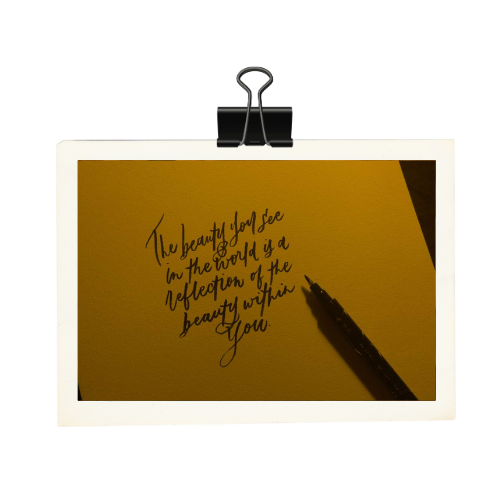 The beauty you see
in the world is a
reflection of the
beauty within
You.